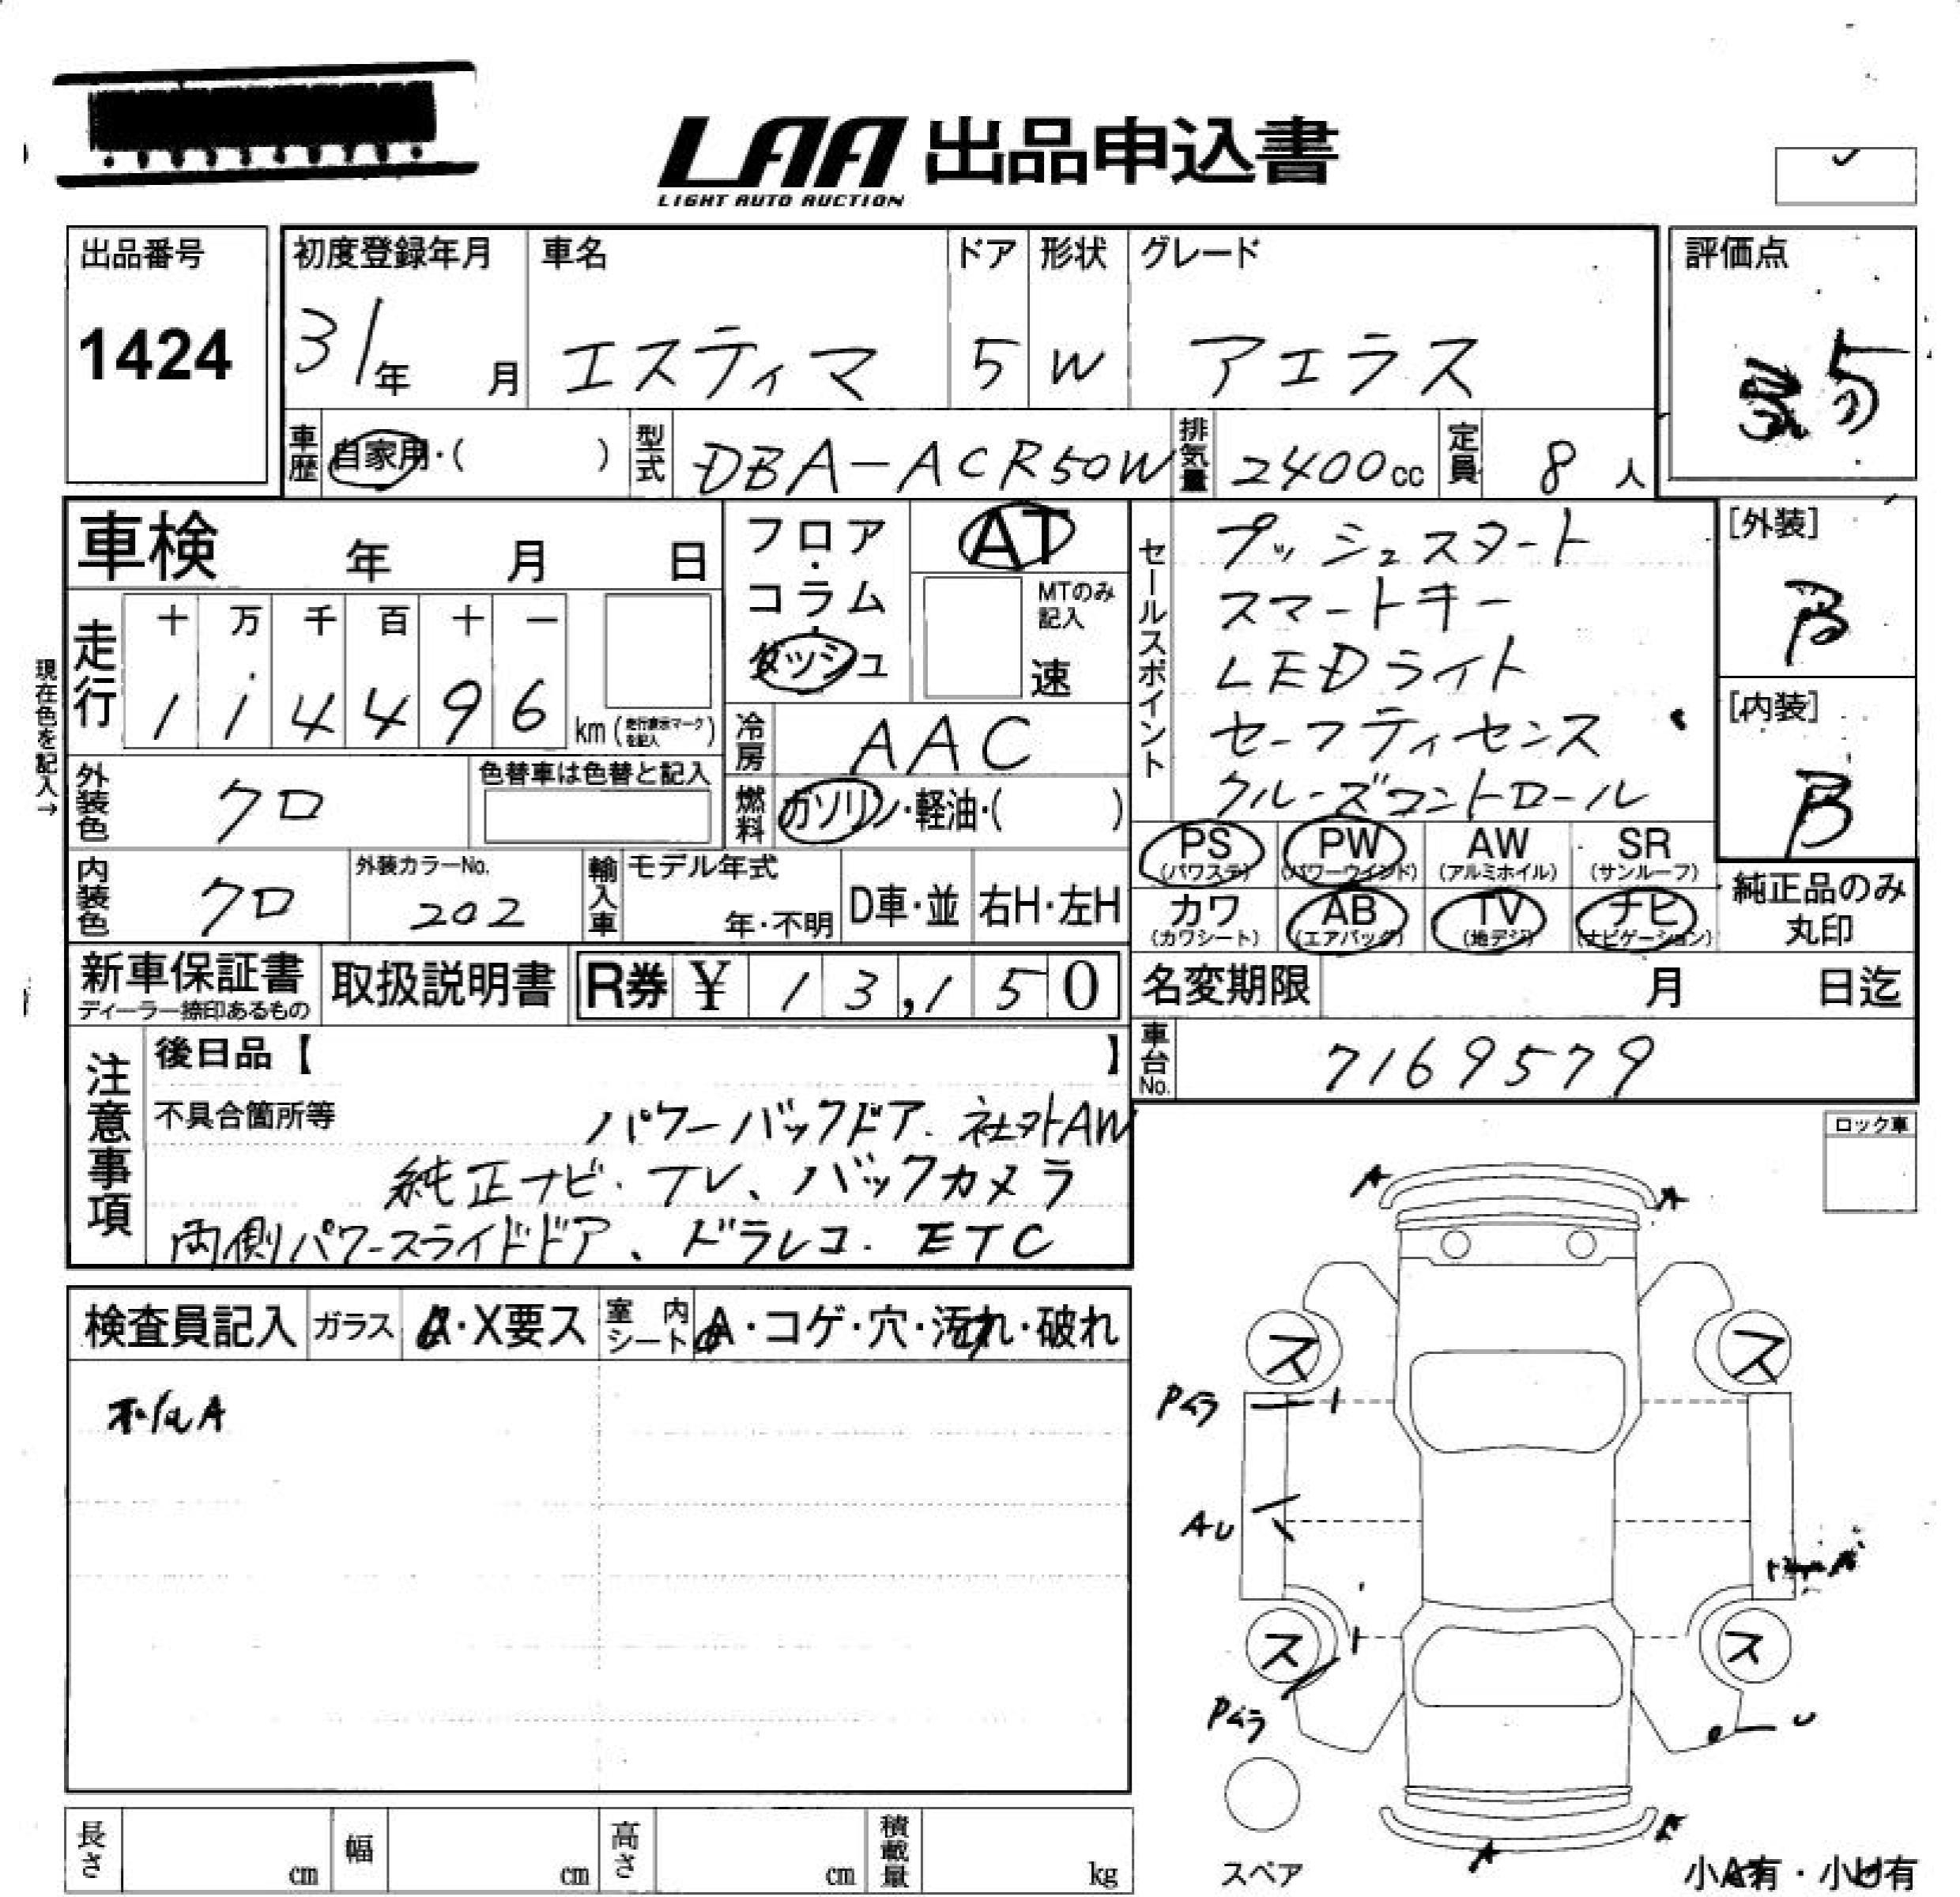 LAA 出品申込書
LIGHT AUTO AUCTION
出品番号
1424
初度登録年月
31年 月
車名
エスティマ
ドア
5
形状
W
グレード
アエラス
評価点
3.5
車歴
自家用・( )
型式
DBA-ACR50W
排気量
2400cc
定員
8人
車検 年 月 日
フロア・
コラム・
ダッシュ
AT
MTのみ
記入
速
セールスポイント
プッシュスタート
スマートキー
LEDライト
セーフティセンス
クルーズコントロール
[外装]
B
[内装]
B
現在色を記入→
走行
十 万 千 百 十 一
1 1 4 4 9 6
km(走行表示マークを記入)
冷房
AAC
燃料
ガソリン・軽油・( )
外装色
クロ
色替車は色替と記入
内装色
クロ
外装カラーNo.
202
輸入車
モデル年式
年・不明
D車・並
右H・左H
PS
(パワステ)
PW
(パワーウインド)
AW
(アルミホイル)
SR
(サンルーフ)
カワ
(カワシート)
AB
(エアバッグ)
TV
(地デジ)
ナビ
(ナビゲーション)
純正品のみ
丸印
新車保証書
ディーラー捺印あるもの
取扱説明書
R券 ¥ 13,150
名変期限 月 日迄
車台No.
7169579
注意事項
後日品【 】
不具合箇所等
パワーバックドア、社外AW
純正ナビ・TV、バックカメラ
両側パワースライドドア、ドラレコ、ETC
ロック車
検査員記入
ガラス
A・X要ス
室内
シート
A・コゲ・穴・汚れ・破れ
ホイルA
A A
ス ス
Pムラ
AU
ス ス
Pムラ
U
スペア
A
小A有・小U有
長さ cm
幅 cm
高さ cm
積載量 kg